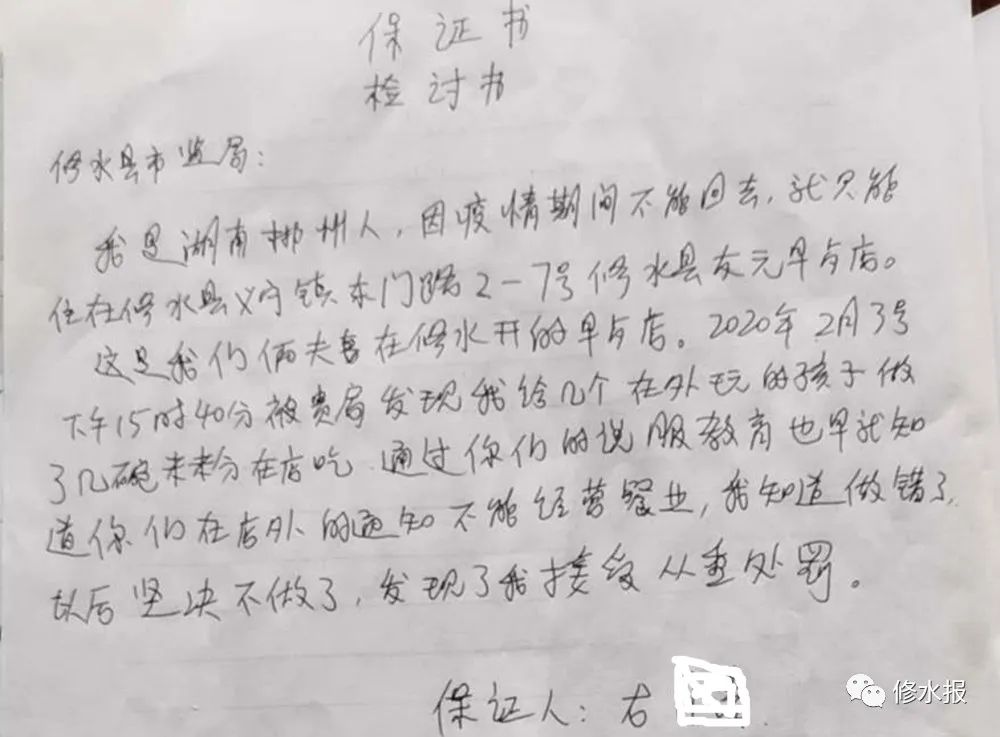 保证书
检讨书
修水县市监局：
我是湖南郴州人，因疫情期间不能回去，就只能
住在修水县义宁镇东门路2-7号修水县友元早点店。
这是我们俩夫妻在修水开的早点店。2020年2月3号
下午15时40分被贵局发现我给几个在外玩的孩子做
了几碗米粉在店吃 通过你们的说服教育也早就知
道你们在店外的通知不能经营餐业，我知道做错了，
以后坚决不做了，发现了我接受从重处罚。
保证人：右
修水报